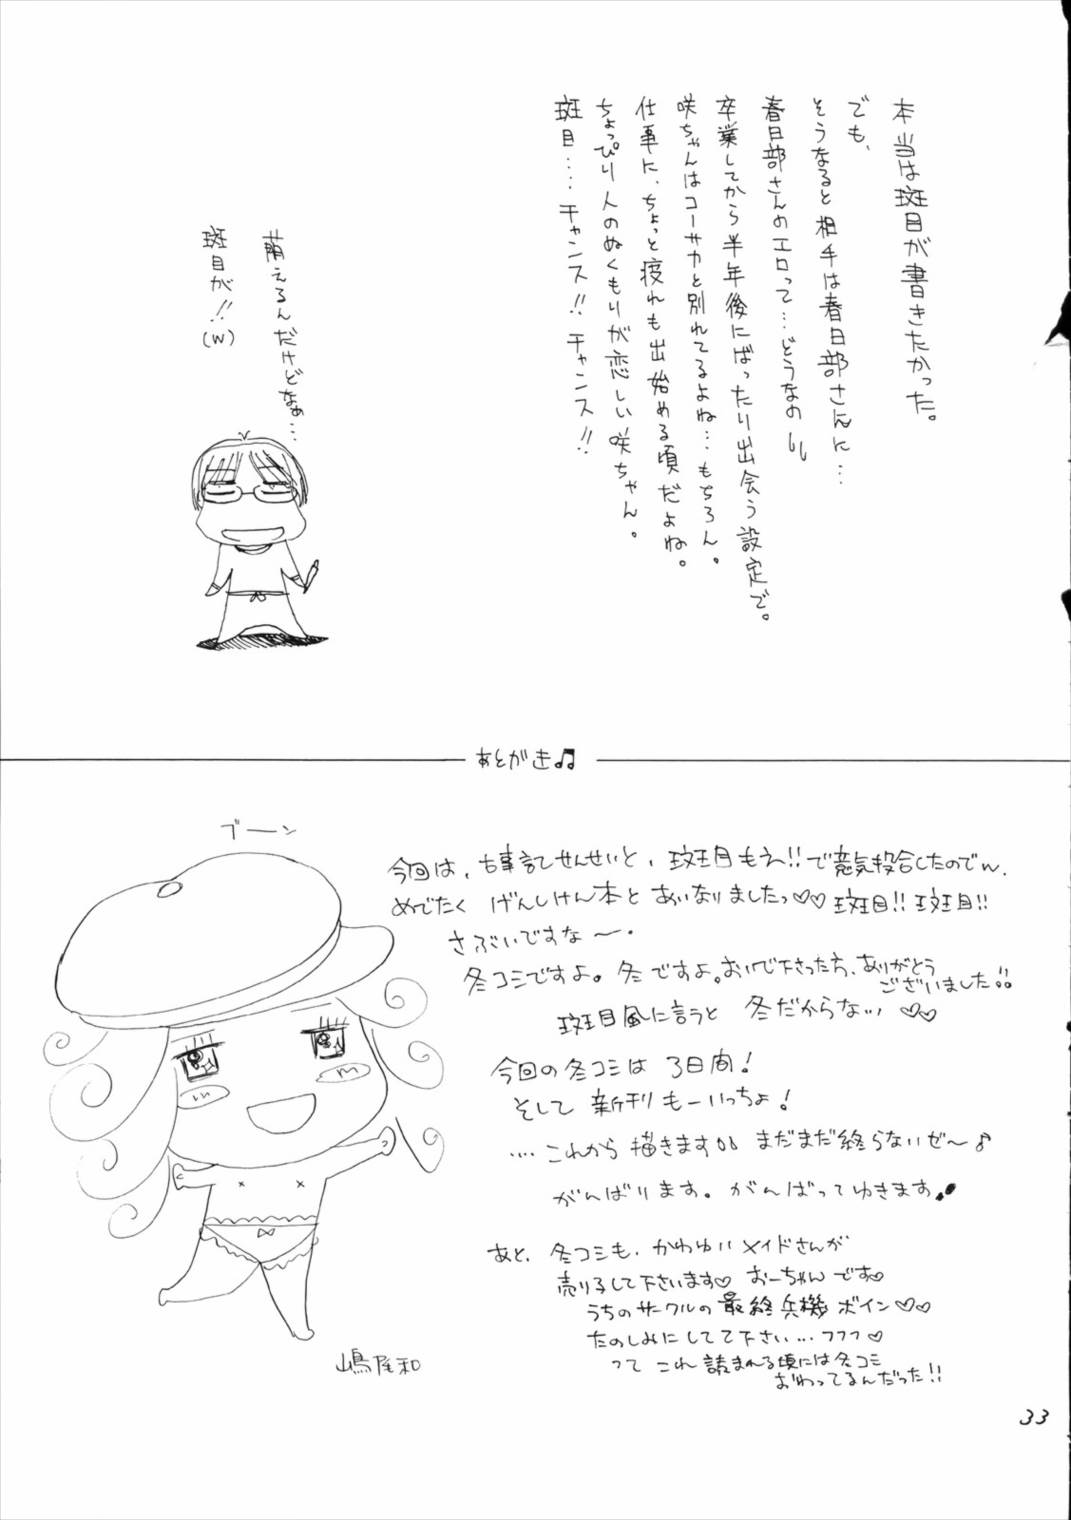 本当は斑目が書きたかった。
でも、
そうなると相手は春日部さんに…
春日部さんのエロって…どうなの
卒業してから半年後にばったり出会う設定で。
咲ちゃんはコーサカと別れてるよね…もちろん。
仕事に、ちょっと疲れも出始める頃だよね。
ちょっぴり人のぬくもりが恋しい咲ちゃん。
斑目‥‥チャンス!!チャンス!!
萌えるんだけどなぁ…
斑目が!!
(W)
あとがき♫
ブーン
今回は、古事記せんせいと、斑目もえ!!で意気投合したのでw、
めでたく げんしけん本と あいなりましたっ♡♡斑目!!斑目!!
さぶいですな〜.
冬コミですよ。冬ですよ。おいで下さった方、ありがとう
ございました!!
斑目風に言うと 冬だからな… ♡♡
今回の冬コミは 3日間!
そして 新刊もーいっちょ!
‥‥これから 描きます まだまだ終らないぜ〜♪
がんばります。がんばってゆきます
あと、冬コミも、かわゆいメイドさんが
売り子して下さいます♡ おーちゃんです♡
うちのサークルの最終兵機 ボイン♡♡
たのしみにしてて下さい…フフフ♡
って これ 読まれる頃には冬コミ
おわってるんだった!!
嶋尾和
33